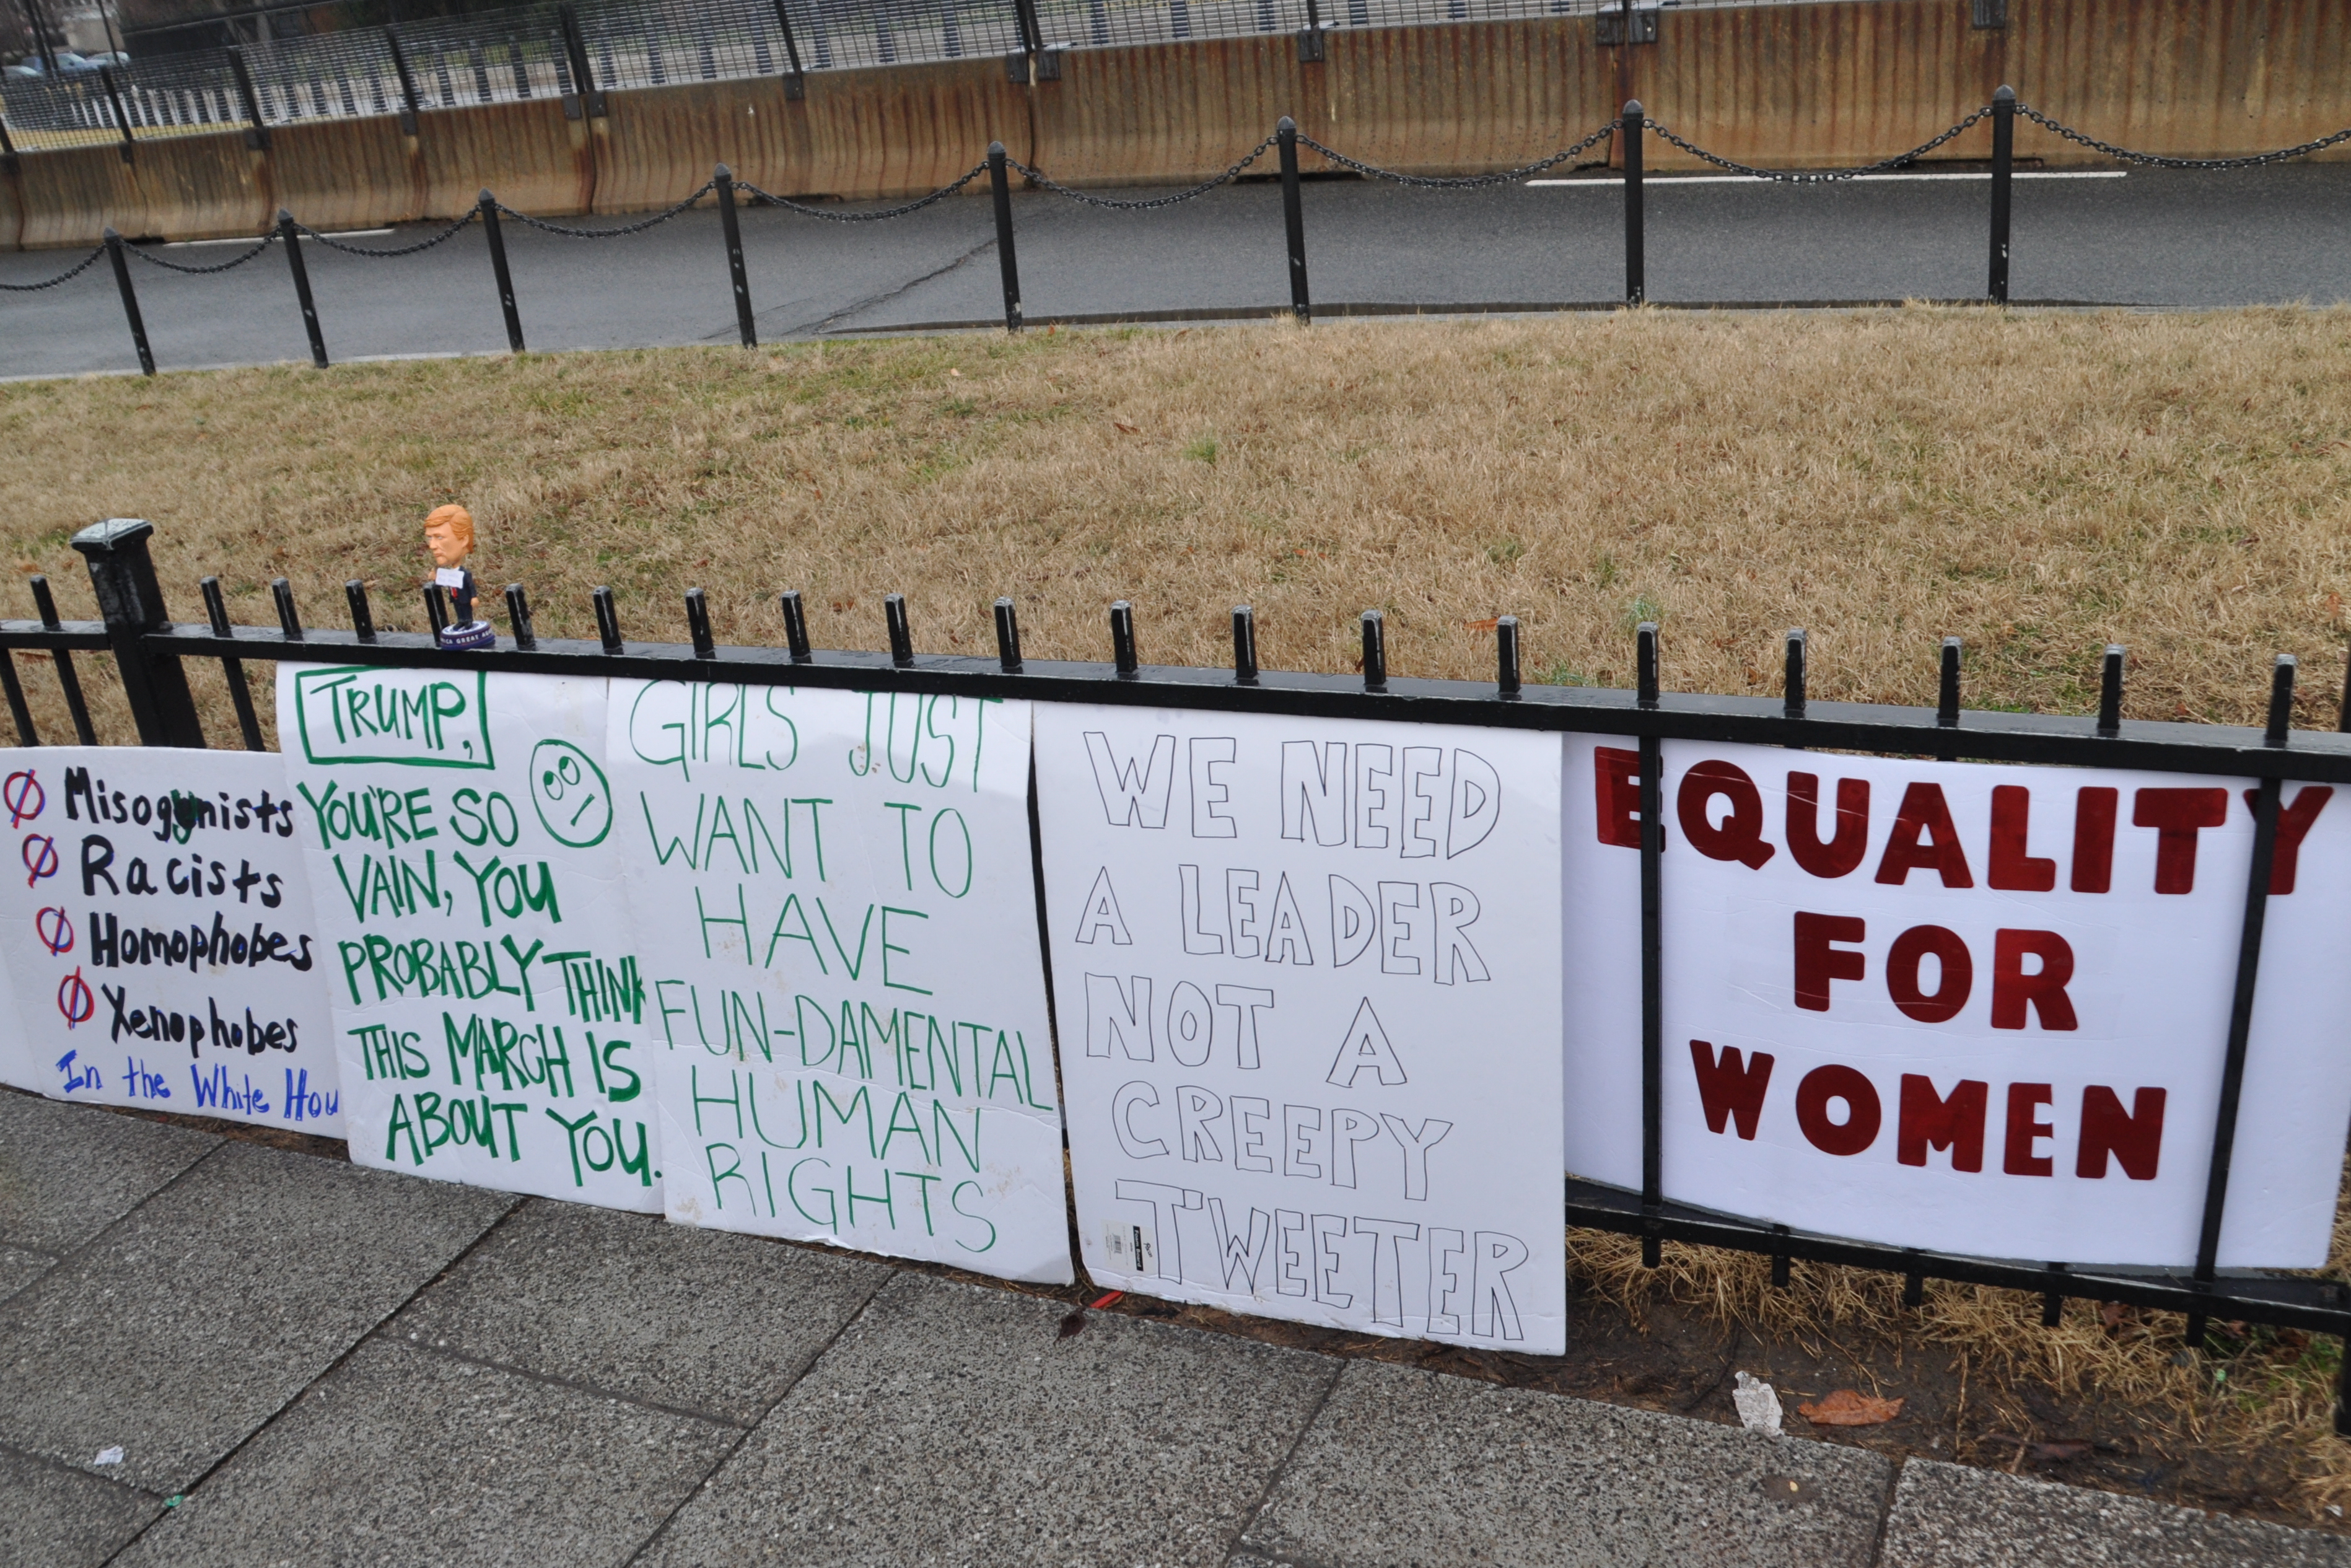 Misogynists
Racists
Homophobes
Xenophobes
In the White Hou
TRUMP,
YOU'RE SO
VAIN, YOU
PROBABLY THINK
THIS MARCH IS
ABOUT YOU.
GIRLS JUST
WANT TO
HAVE
FUN-DAMENTAL
HUMAN
RIGHTS
WE NEED
A LEADER
NOT A
CREEPY
TWEETER
EQUALITY
FOR
WOMEN
GREAT